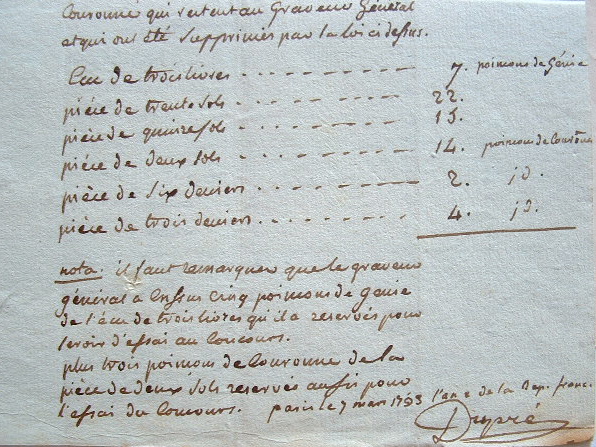 Couronne qui restent au Graveur Général
et qui ont été supprimés par la loi ci dessus.
Ecu de trois livres 7. poinsons de Génie
pièce de trente sols 22.
pièce de quinze sols 15.
pièce de deux sols 14. poinsons de Couronne
pièce de six deniers 2. id.
pièce de trois deniers 4. id.
nota. il faut remarquer que le graveur
général a en sus Cinq poinsons de Génie
de l'écu de trois livres qu'il a reservés pour
servir d'essai au Concours.
plus trois poinsons de Couronne de la
pièce de deux sols reservés aussi pour
l'essai du Concours. paris le 7 mars 1793 l'an 2 de la Rep. franc.
Dupré